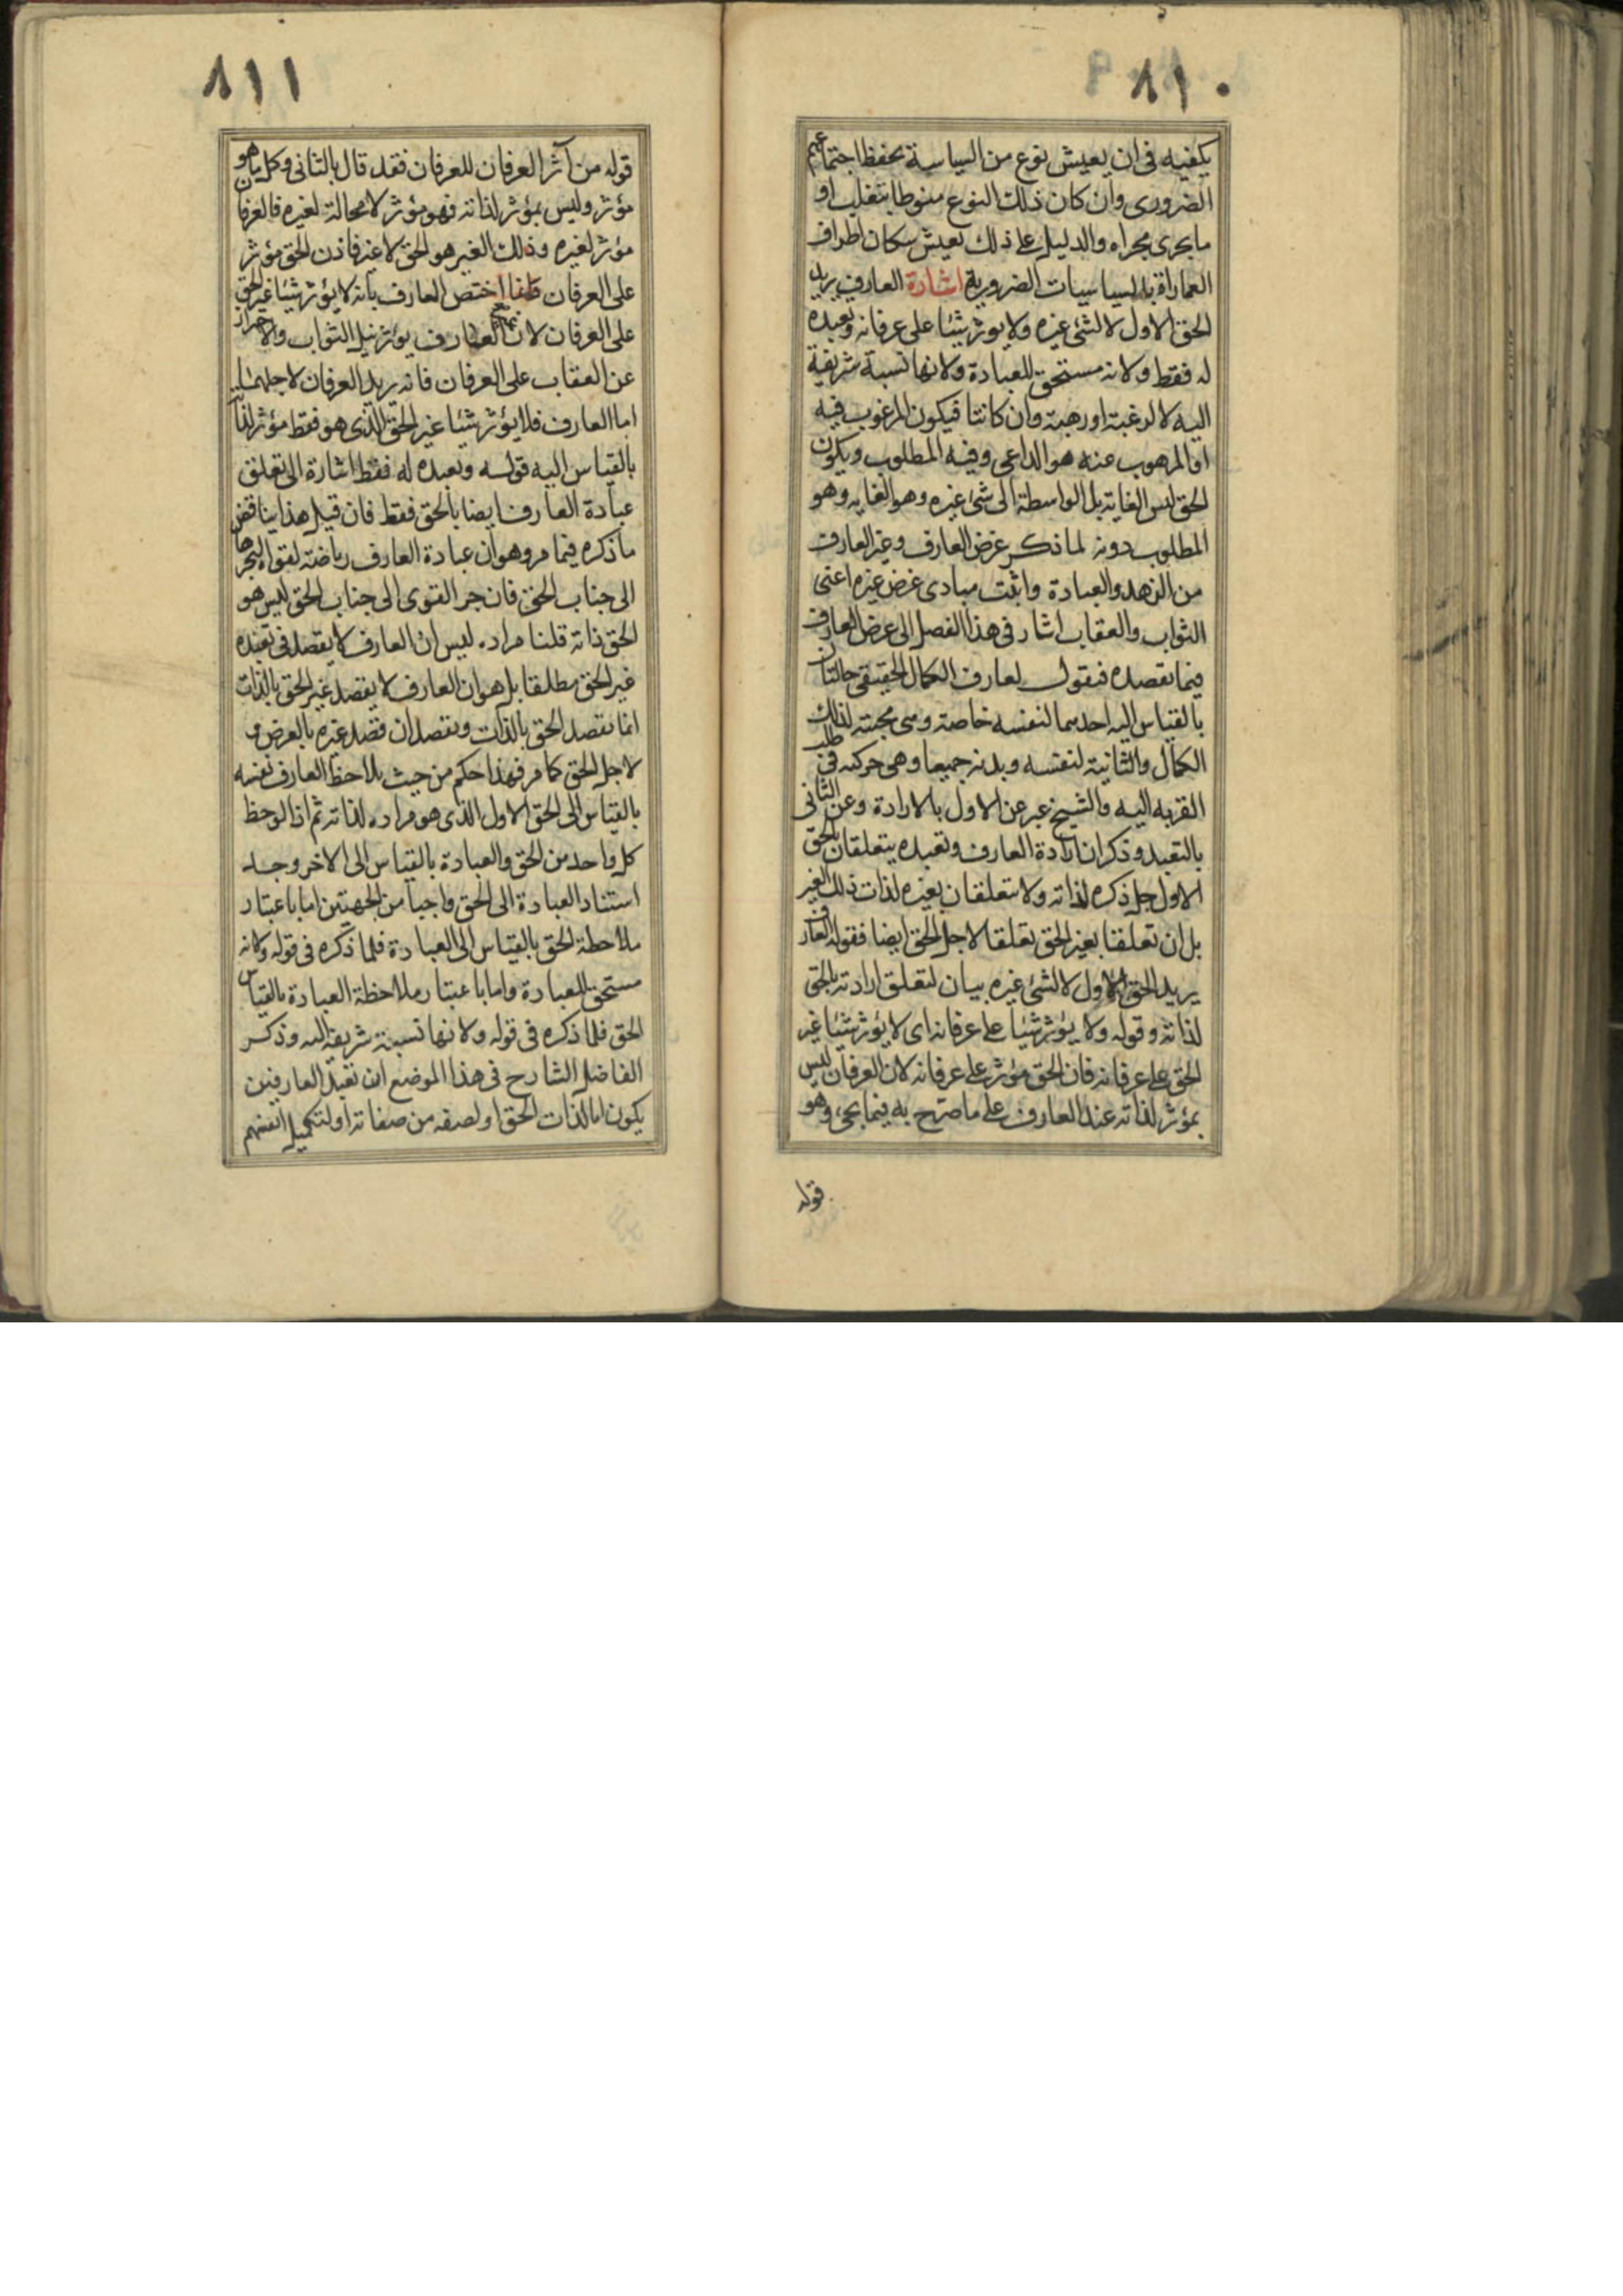 ٨١٠
يكفيه في ان يعيش نوع من السياسة يحفظ اجتماعهم
الضرورى وان كان ذلك النوع منوطا بتغلب او
ما يجرى مجراه والدليل على ذلك تعيش سكان اطراف
العمارة بالسياسات الضرورية اشارة العارف يريد
الحق الاول لا لشئ غيره ولا يوثر شيئا على عرفانه وتعبده
له فقط ولانه مستحق للعبادة ولانها نسبة شريفة
اليه لا لرغبة او رهبة وان كانتا فيكون المرغوب فيه
او المرهوب عنه هو الداعى وفيه المطلوب ويكون
الحق ليس الغاية بل الواسطة الى شئ غيره وهو الغاية وهو
المطلوب دونه لما ذكر غرض العارف وغير العارف
من الزهد والعبادة واثبت مبادى غرض غيره اعنى
الثواب والعقاب اشار فى هذا الفصل الى غرض العارف
فيما يقصده فنقول لعارف الكمال الحقيقى حالتان
بالقياس اليه احديهما لنفسه خاصة وهى محبته لذلك
الكمال والثانية لنفسه وبدنه جميعا وهى حركته فى طلب
القربة اليه والشيخ عبر عن الاول بالارادة وعن الثانى
بالتعبد وذكر ان ارادة العارف وتعبده يتعلقان بالحق
الاول جل ذكره لذاته ولا يتعلقان بغيره لذات ذلك الغير
بل ان تعلقا بغير الحق تعلقا لاجل الحق ايضا فقوله العارف
يريد الحق الاول لا لشئ غيره بيان لتعلق ارادته بالحق
لذاته وقوله ولا يؤثر شيئا على عرفانه اى لا يؤثر شيئا غير
الحق على عرفانه فان الحق مؤثر على عرفانه لان العرفان ليس
بمؤثر لذاته عند العارف على ما صرح به فيما يجئ وهو
قوله
٨١١
قوله من آثر العرفان للعرفان فقد قال بالثانى وكل ما هو
مؤثر وليس بمؤثر لذاته فهو مؤثر لا محالة لغيره فالعرفان
مؤثر لغيره وذلك الغير هو الحق لا غير فاذن الحق مؤثر
على العرفان وانما اختص العارف بانه لا يؤثر شيئا غير الحق
على العرفان لان غير العارف يؤثر نيل الثواب والاحتراز
عن العقاب على العرفان فانه يريد العرفان لاجلهما
اما العارف فلا يؤثر شيئا غير الحق الذى هو فقط مؤثر لذاته
بالقياس اليه قوله وتعبده له فقط اشارة الى تعلق
عبادة العارف ايضا بالحق فقط فان قيل هذا يناقض
ما ذكره فيما مر وهو ان عبادة العارف رياضة لقواه ليجرها
الى جناب الحق فان جر القوى الى جناب الحق ليس هو
الحق ذاته قلنا مراده ليس ان العارف لا يقصد فى تعبده
غير الحق مطلقا بل هو ان العارف لا يقصد غير الحق بالذات
انما يقصد الحق بالذات ويقصد ان قصد غيره بالعرض و
لاجل الحق كما مر فهذا حكم من حيث يلاحظ العارف نفسه
بالقياس الى الحق الاول الذى هو مراده لذاته ثم اذا لوحظ
كل واحد من الحق والعبادة بالقياس الى الاخر وجد
استناد العبادة الى الحق واجبا من الجهتين اما باعتبار
ملاحظة الحق بالقياس الى العبادة فلما ذكره فى قوله ولانه
مستحق للعبادة واما باعتبار ملاحظة العبادة بالقياس
الحق فلما ذكره فى قوله ولانها نسبة شريفة اليه وذكر
الفاضل الشارح فى هذا الموضع ان تعبد العارفين
يكون اما لذات الحق او لصفة من صفاته او لتكميل انفسهم